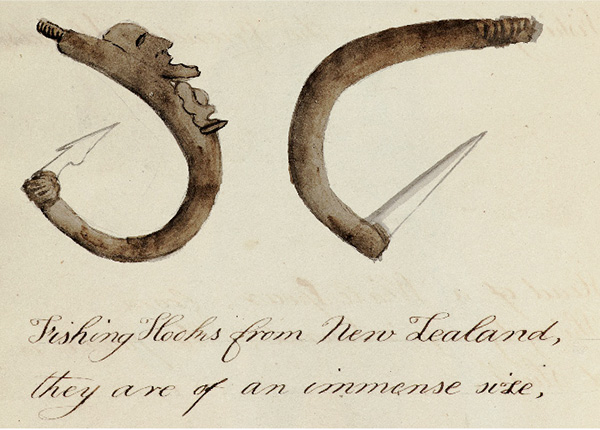 Fishing Hooks from New Zealand,
they are of an immense size,